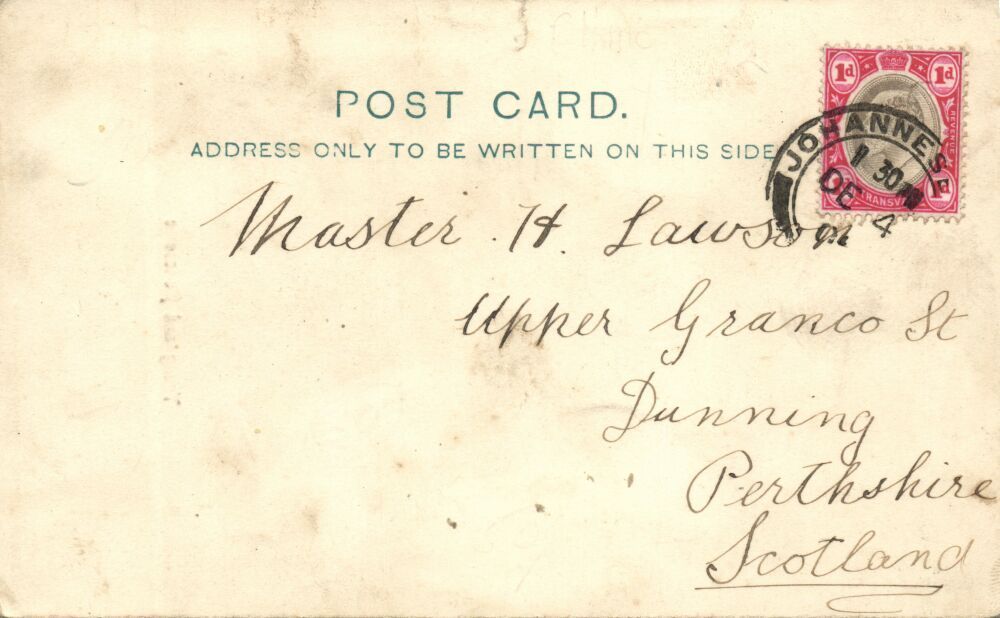 POST CARD.
ADDRESS ONLY TO BE WRITTEN ON THIS SIDE
1d 1d
REVENUE
TRANSVA
JOHANNESB
11 30
DE 4
Master H. Lawson
Upper Granco St
Dunning
Perthshire
Scotland